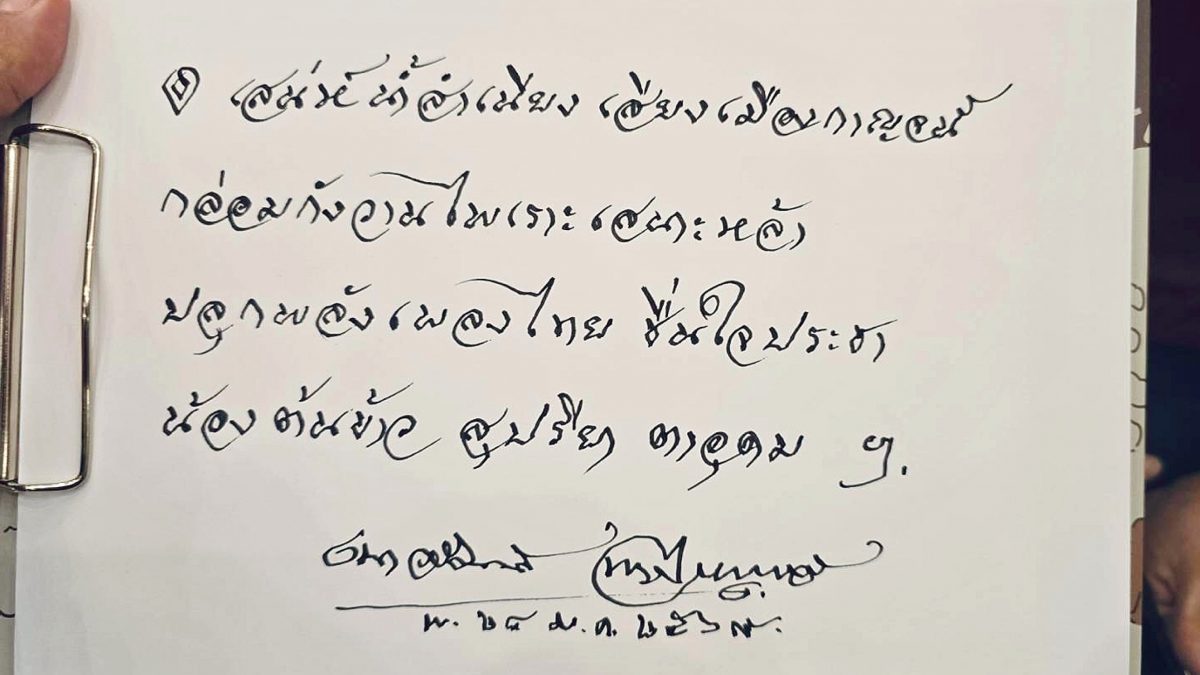 ๏ เสน่ห์น้ำสำเนียง เสียงเมืองกาญจน์
กล่อมกังวานไพเราะเสนาะหล้า
ปลุกพลังเพลงไทย ชื่นใจประชา
น้อง ต้นข้าว สุปรียา ตาอุดม ฯ.
พ. ๒๘ ม.ค. ๒๕๖๙.